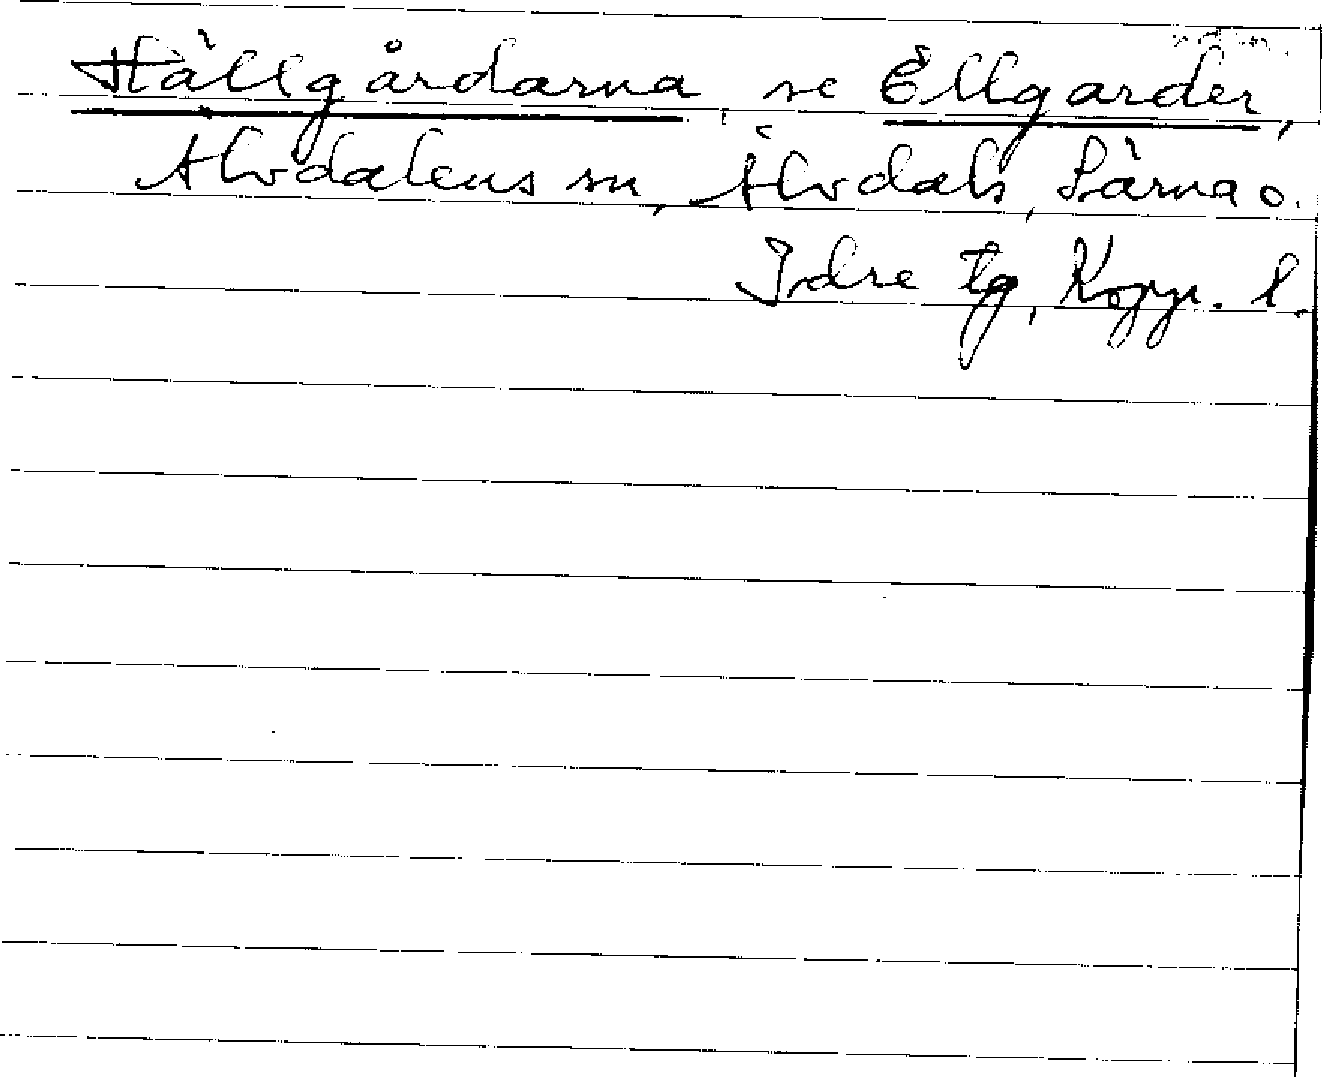 Hällgårdarna, se Ellgarder,
Älvdalens sn, Älvdals, Särna o.
Idre tg, Kopp. l.